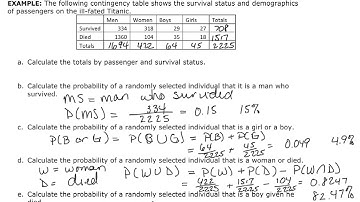 EXAMPLE: The following contingency table shows the survival status and demographics
of passengers on the ill-fated Titanic.
Men Women Boys Girls Totals
Survived 334 318 29 27 708
Died 1360 104 35 18 1517
Totals 1694 422 64 45 2225
a. Calculate the totals by passenger and survival status.
b. Calculate the probability of a randomly selected individual that it is a man who
survived. MS = man who survived
P(MS) = 334/2225 = 0.15 15%
c. Calculate the probability of a randomly selected individual that is a girl or a boy.
P(B or G) = P(B∪G) = P(B) + P(G)
= 64/2225 + 45/2225 = 0.049 4.9%
d. Calculate the probability of a randomly selected individual that is a woman or died.
W = woman P(W∪D) = P(W) + P(D) - P(W∩D)
D = died = 422/2225 + 1517/2225 - 104/2225 = 0.8247
e. Calculate the probability of a randomly selected individual that is a boy given he 82.47%
died.